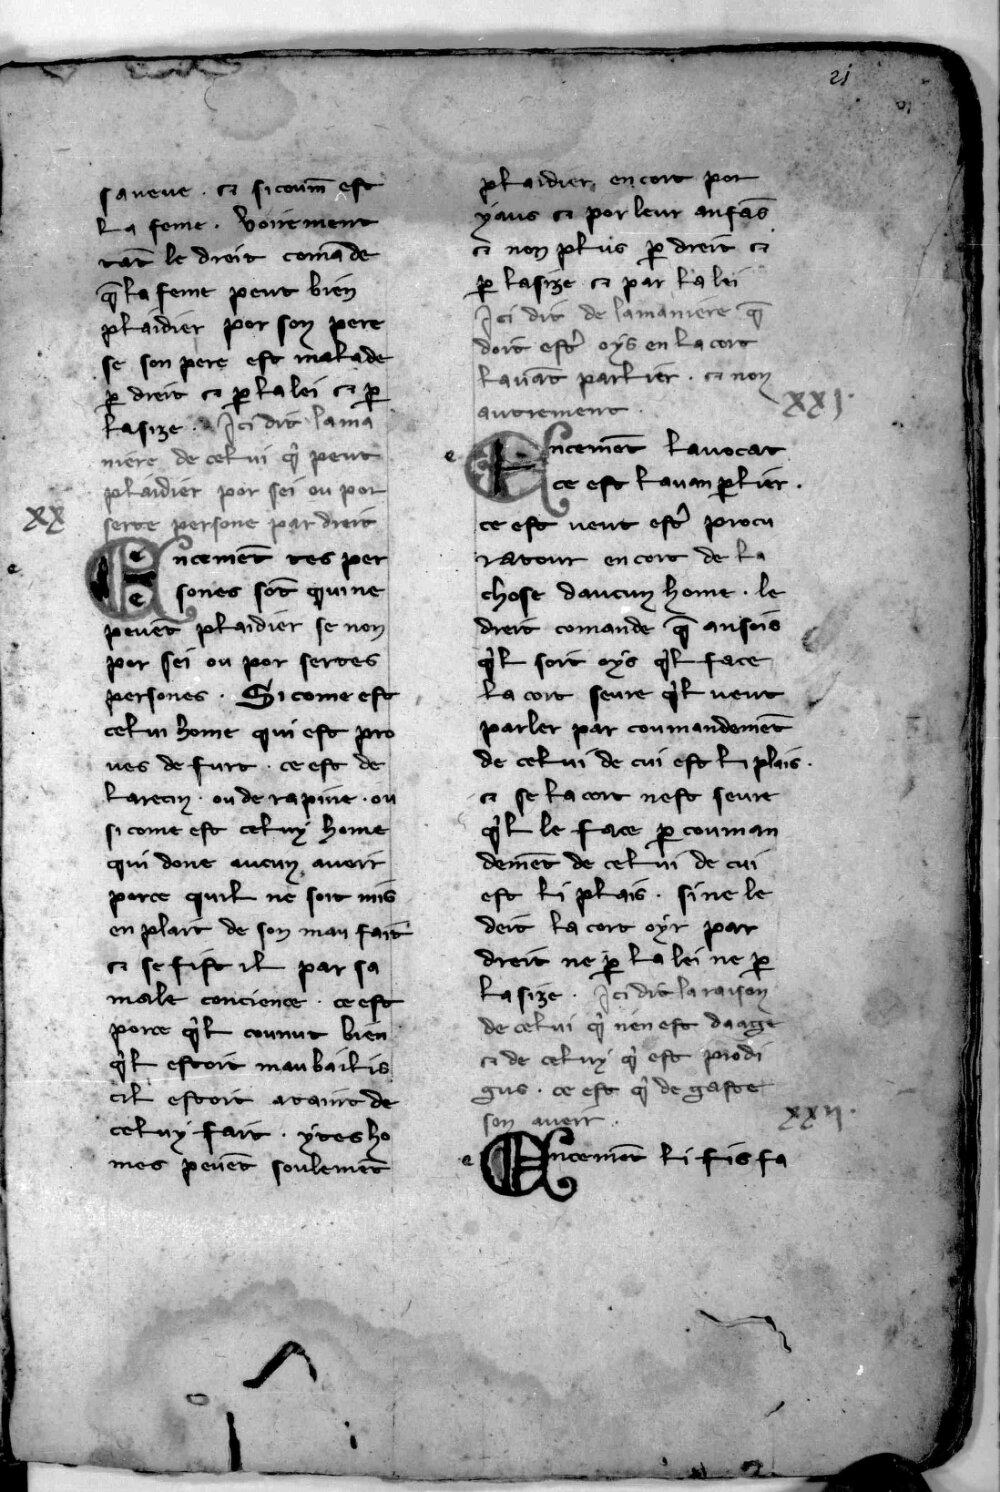 21
saueue . ⁊ si coum̄ est
la feme . Voirement
tāt le dreit comāde
q̄ la feme peut bien
plaidier por son pere
se son pere est malade
p̲ dreit ⁊ p̲ la lei ⁊ p̲
lasize . Ici dit la ma
niere de celui q̑ peut
plaidier por sei ou por
serte persone par dreit
XX
Encemēt tes per
sones sōt qui ne
peuēt plaidier se non
por sei ou por sertes
persones . Si come est
celui home qui est pro
ues de furt . ce est de
larecin . ou de rapine . ou
si come est celuy home
qui done aucun aueir
porce quil ne soit mis
en plait de son mau fait
⁊ se fist il par sa
male concience . ce est
porce q̑l counut bien
q̑l estoit maubailis
cil estoit ataint de
celuy fait . ytes ho
mes peuēt soulemēt
plaidier, en cort por
yaus ⁊ por leur anfās
⁊ non plus p̲ dreit ⁊
p̲ lasize ⁊ par la lei
Ici dit de la maniere q̄
doit estr̉ oys en la cort
lauāt parlier . ⁊ non
autrement .
XXI.
Encemēt lauocat
ce est lauan p̲lier .
ce est ueut estr̉ procu
ratour en cort de la
chose daucun home . le
dreit comande q̄ ansois
q̑l soit oys q̑l face
la cort seure q̑l ueut
parler par coumandemēt
de celui de cui est li plais .
⁊ se la cort nest seure
q̑l le face p̲ couman
demēt de celui de cui
est li plais . si ne le
deit la cort oyr par
dreit ne p̲ la lei ne p̲
lasize . Ici dit la raison
de celui q̑ nen est daage
⁊ de celuy q̑ est prodi
gus . ce est q̑ de gaste
son aueir .
XXII.
Encemēt li fis fa